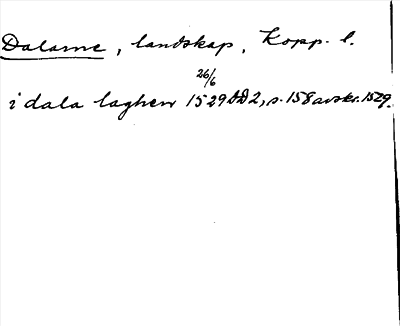 Dalarne, landskap, Kopp. l.
26/6
i dala laghen 1529 DD2, s. 158 avskr. 1529.